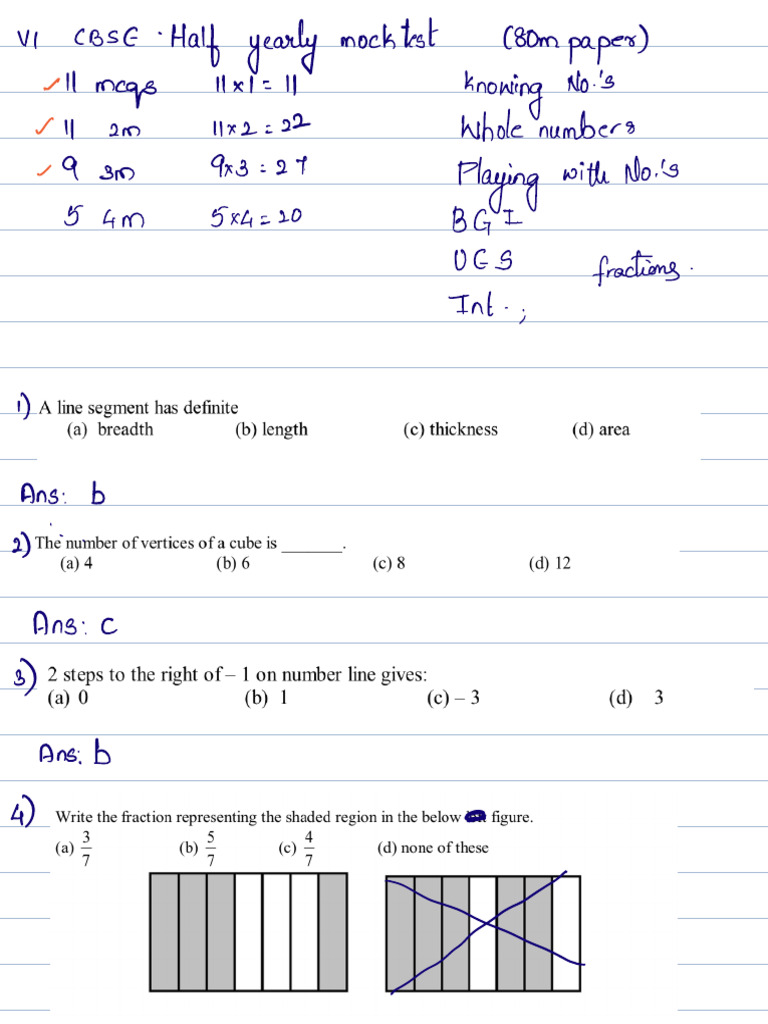 VI CBSE · Half yearly mock test (80m paper)
✓ 11 mcqs 11 x 1 = 11 Knowing No.'s
✓ 11 2m 11 x 2 = 22 Whole numbers
✓ 9 3m 9 x 3 = 27 Playing with No.'s
5 4m 5 x 4 = 20 B G I
U E S fractions.
Int . ;
1) A line segment has definite
(a) breadth (b) length (c) thickness (d) area
Ans: b
2) The number of vertices of a cube is _______.
(a) 4 (b) 6 (c) 8 (d) 12
Ans: c
3) 2 steps to the right of – 1 on number line gives:
(a) 0 (b) 1 (c) – 3 (d) 3
Ans: b
4) Write the fraction representing the shaded region in the below figure.
(a) 3/7 (b) 5/7 (c) 4/7 (d) none of these